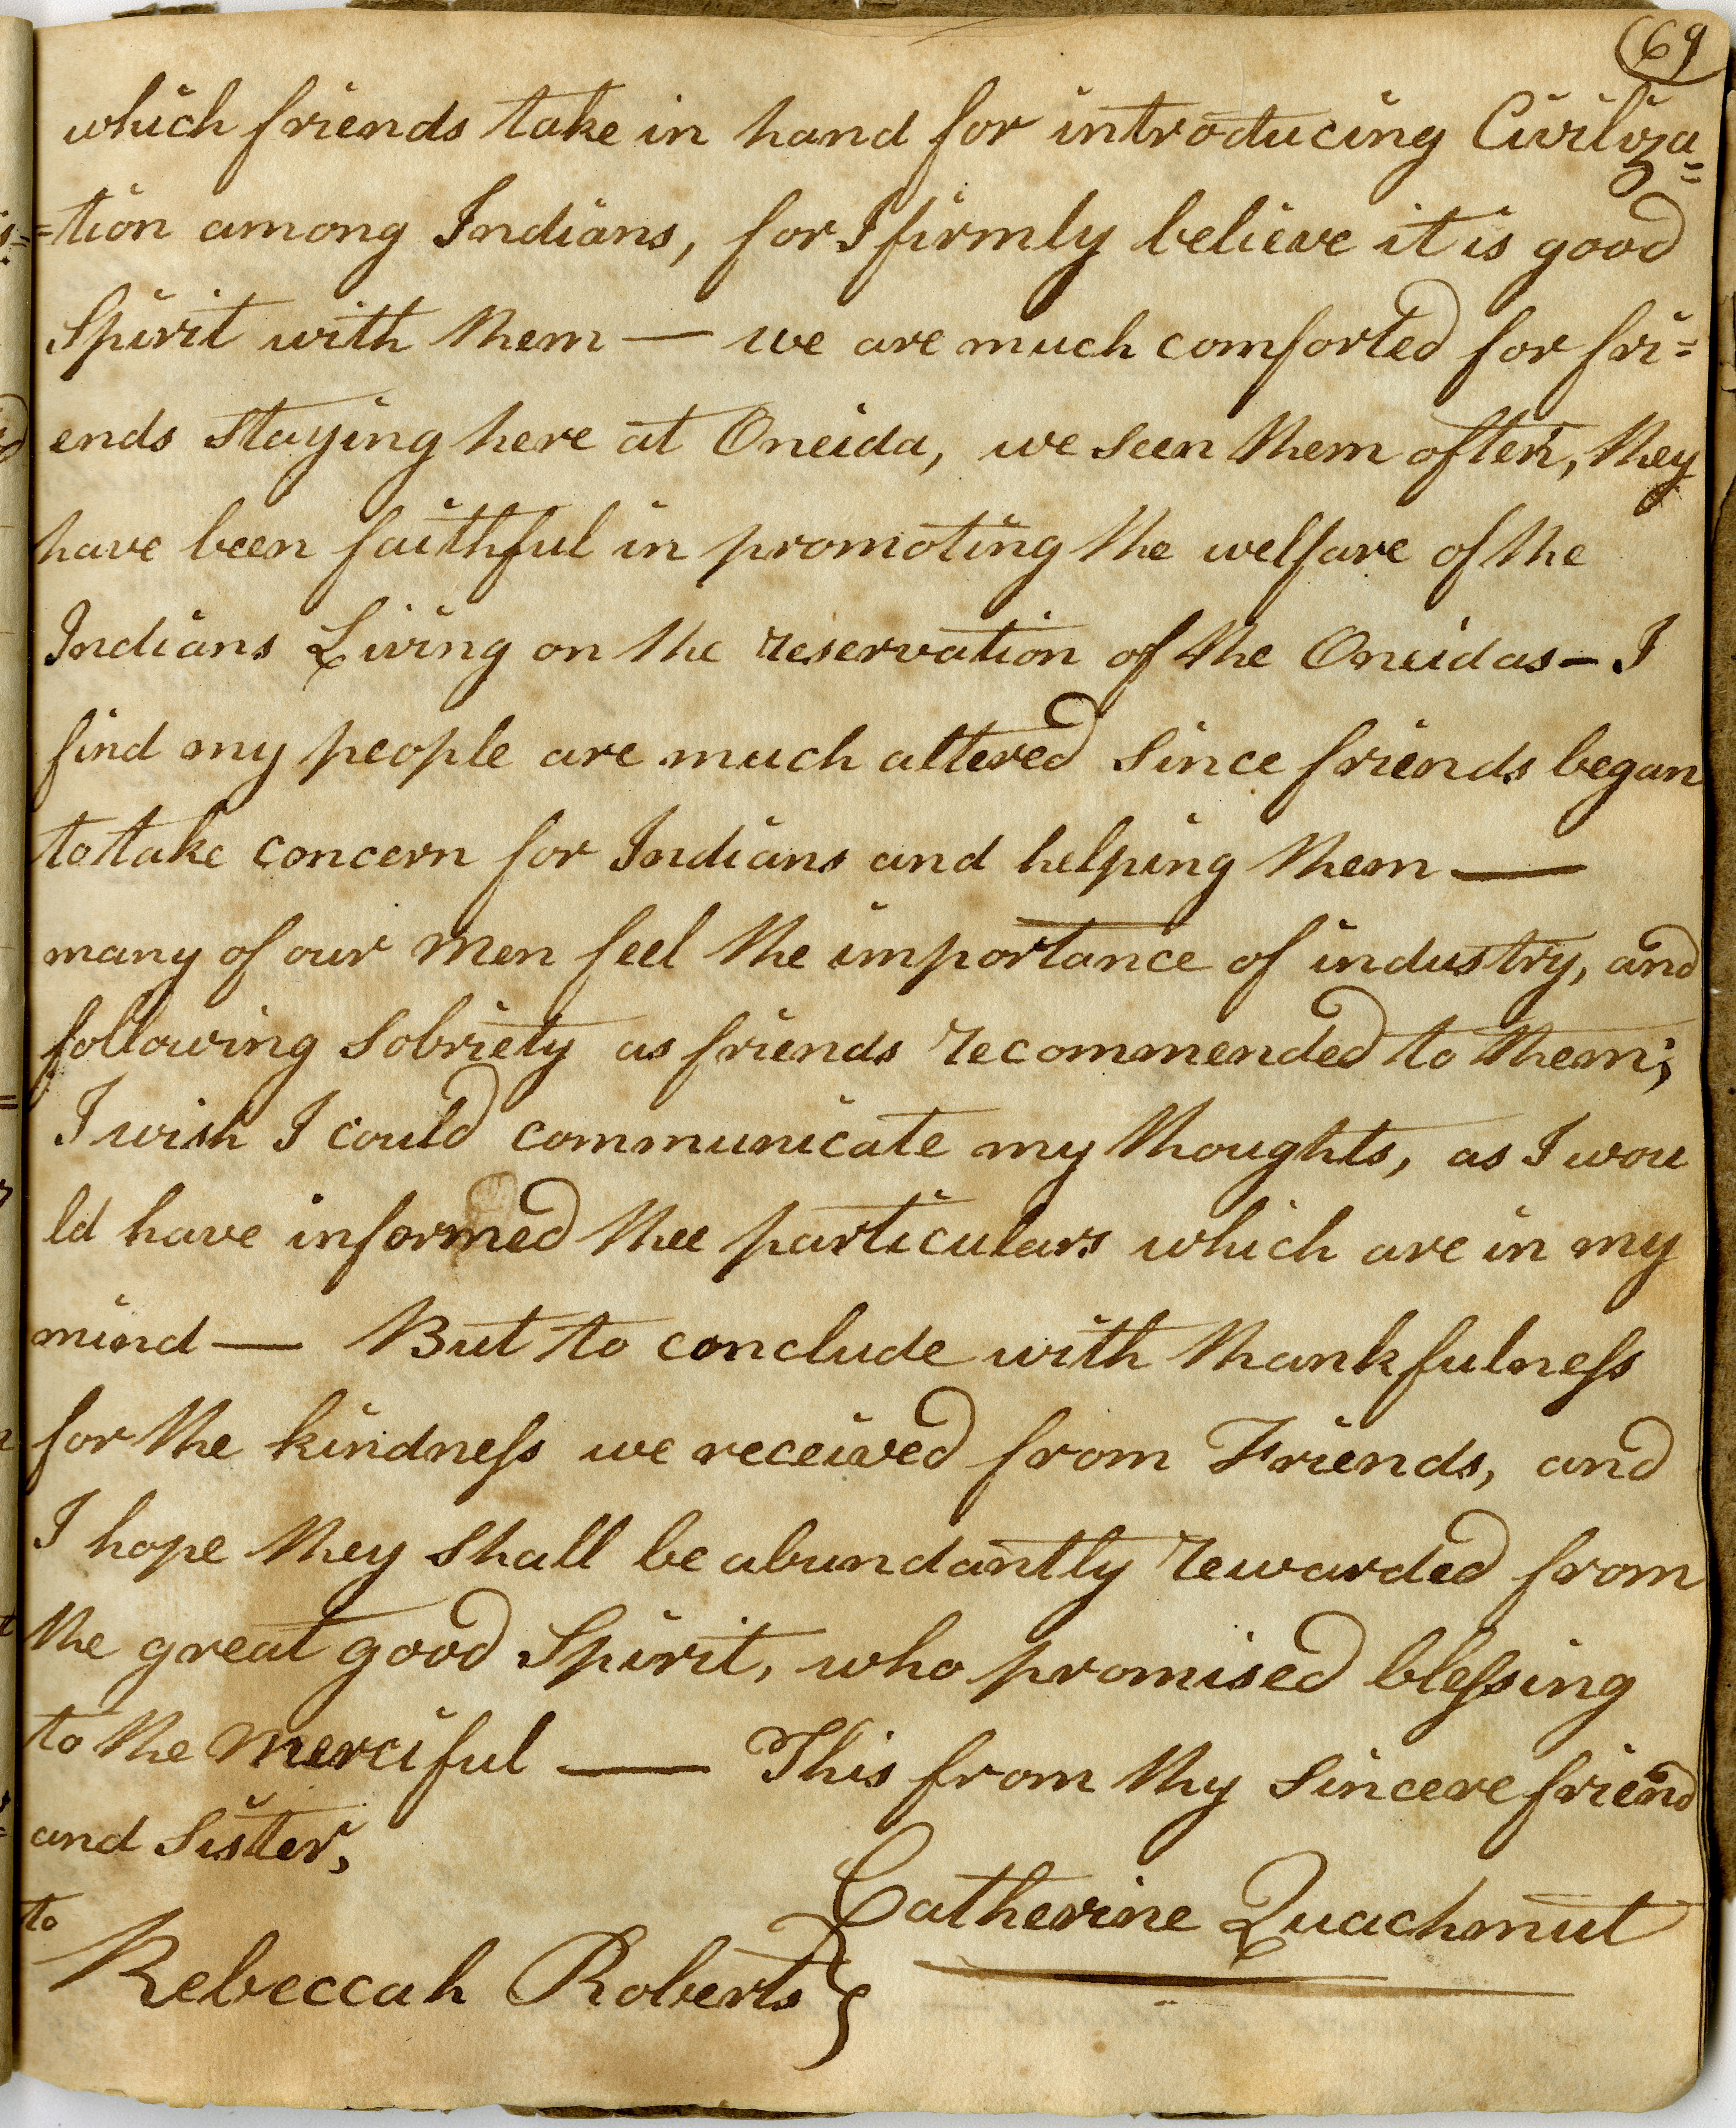 69
which friends take in hand for introducing Civiliza=
=tion among Indians, for I firmly believe it is good
Spirit with them — we are much comforted for fri=
ends staying here at Oneida, we seen them often, they
have been faithful in promoting the welfare of the
Indians Living on the reservation of the Oneidas — I
find my people are much altered since friends began
to take concern for Indians and helping them —
many of our men feel the importance of industry, and
following sobriety as friends recommended to them;
I wish I could communicate my thoughts, as I wou
ld have informed thee particulars which are in my
mind — But to conclude with thankfulneſs
for the kindneſs we received from Friends, and
I hope they shall be abundantly rewarded from
the great good Spirit, who promised bleſsing
to the merciful — This from thy sincere friend
and Sister,
Catherine Quachmut
to
Rebeccah Roberts }